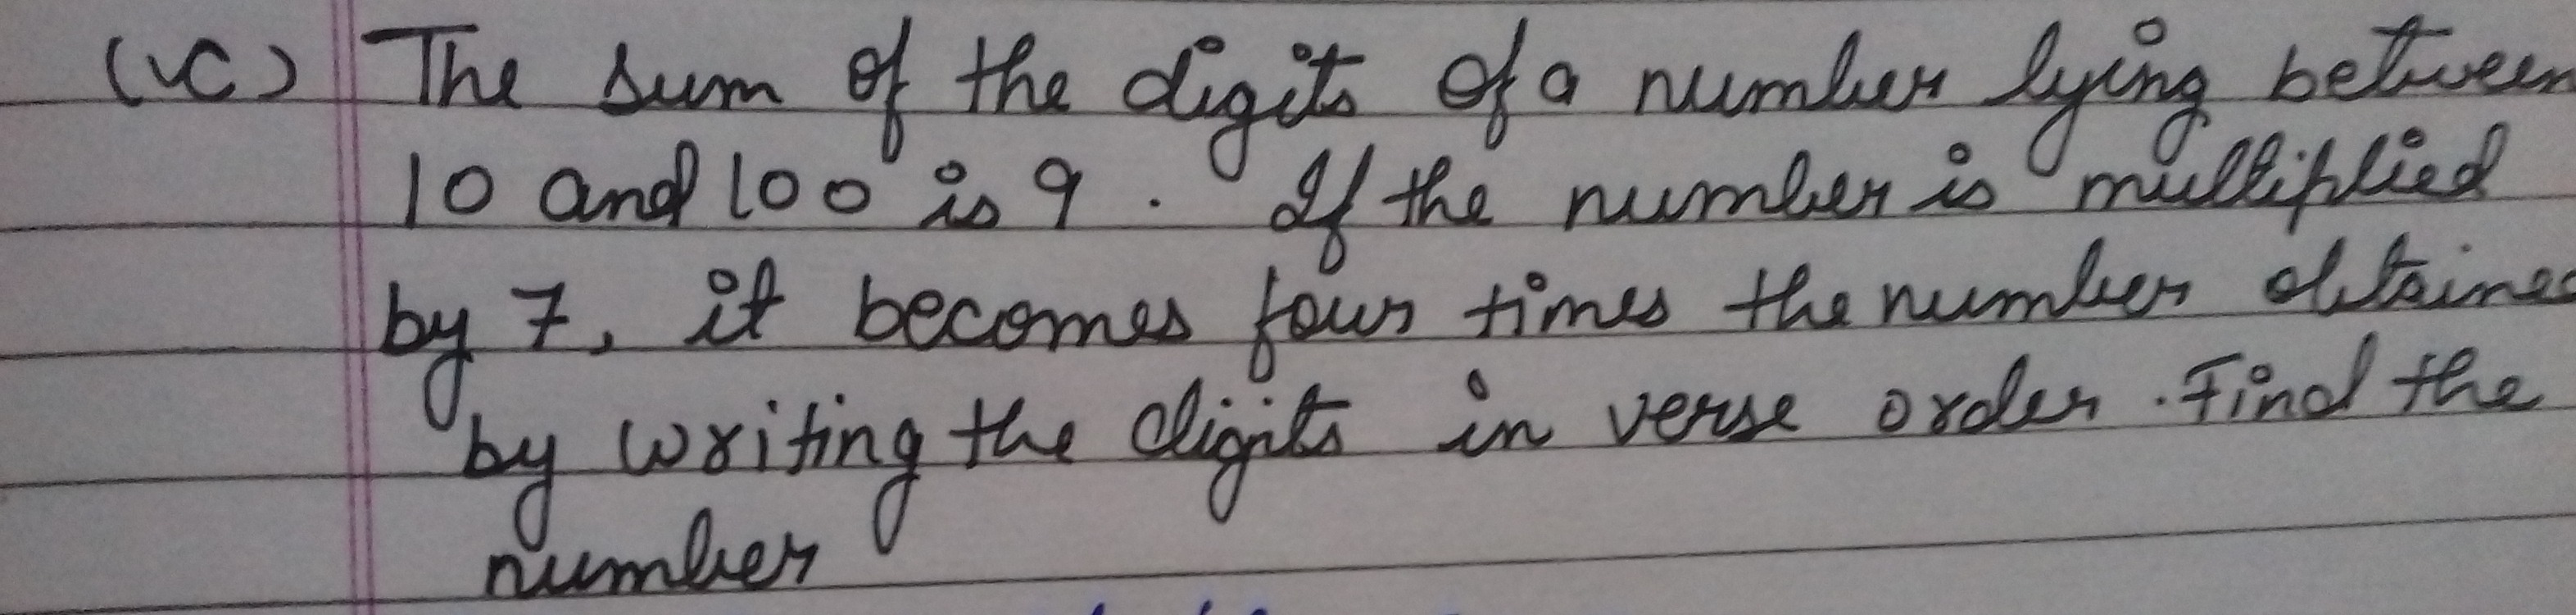 (vc) The sum of the digits of a number lying between
10 and 100 is 9. If the number is multiplied
by 7, it becomes four times the number obtained
by writing the digits in verse order. Find the
number